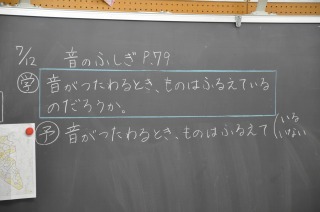 7/12 音のふしぎ P.79
学 音がつたわるとき、ものはふるえている
のだろうか。
予 音がつたわるとき、ものはふるえて(いる
いない